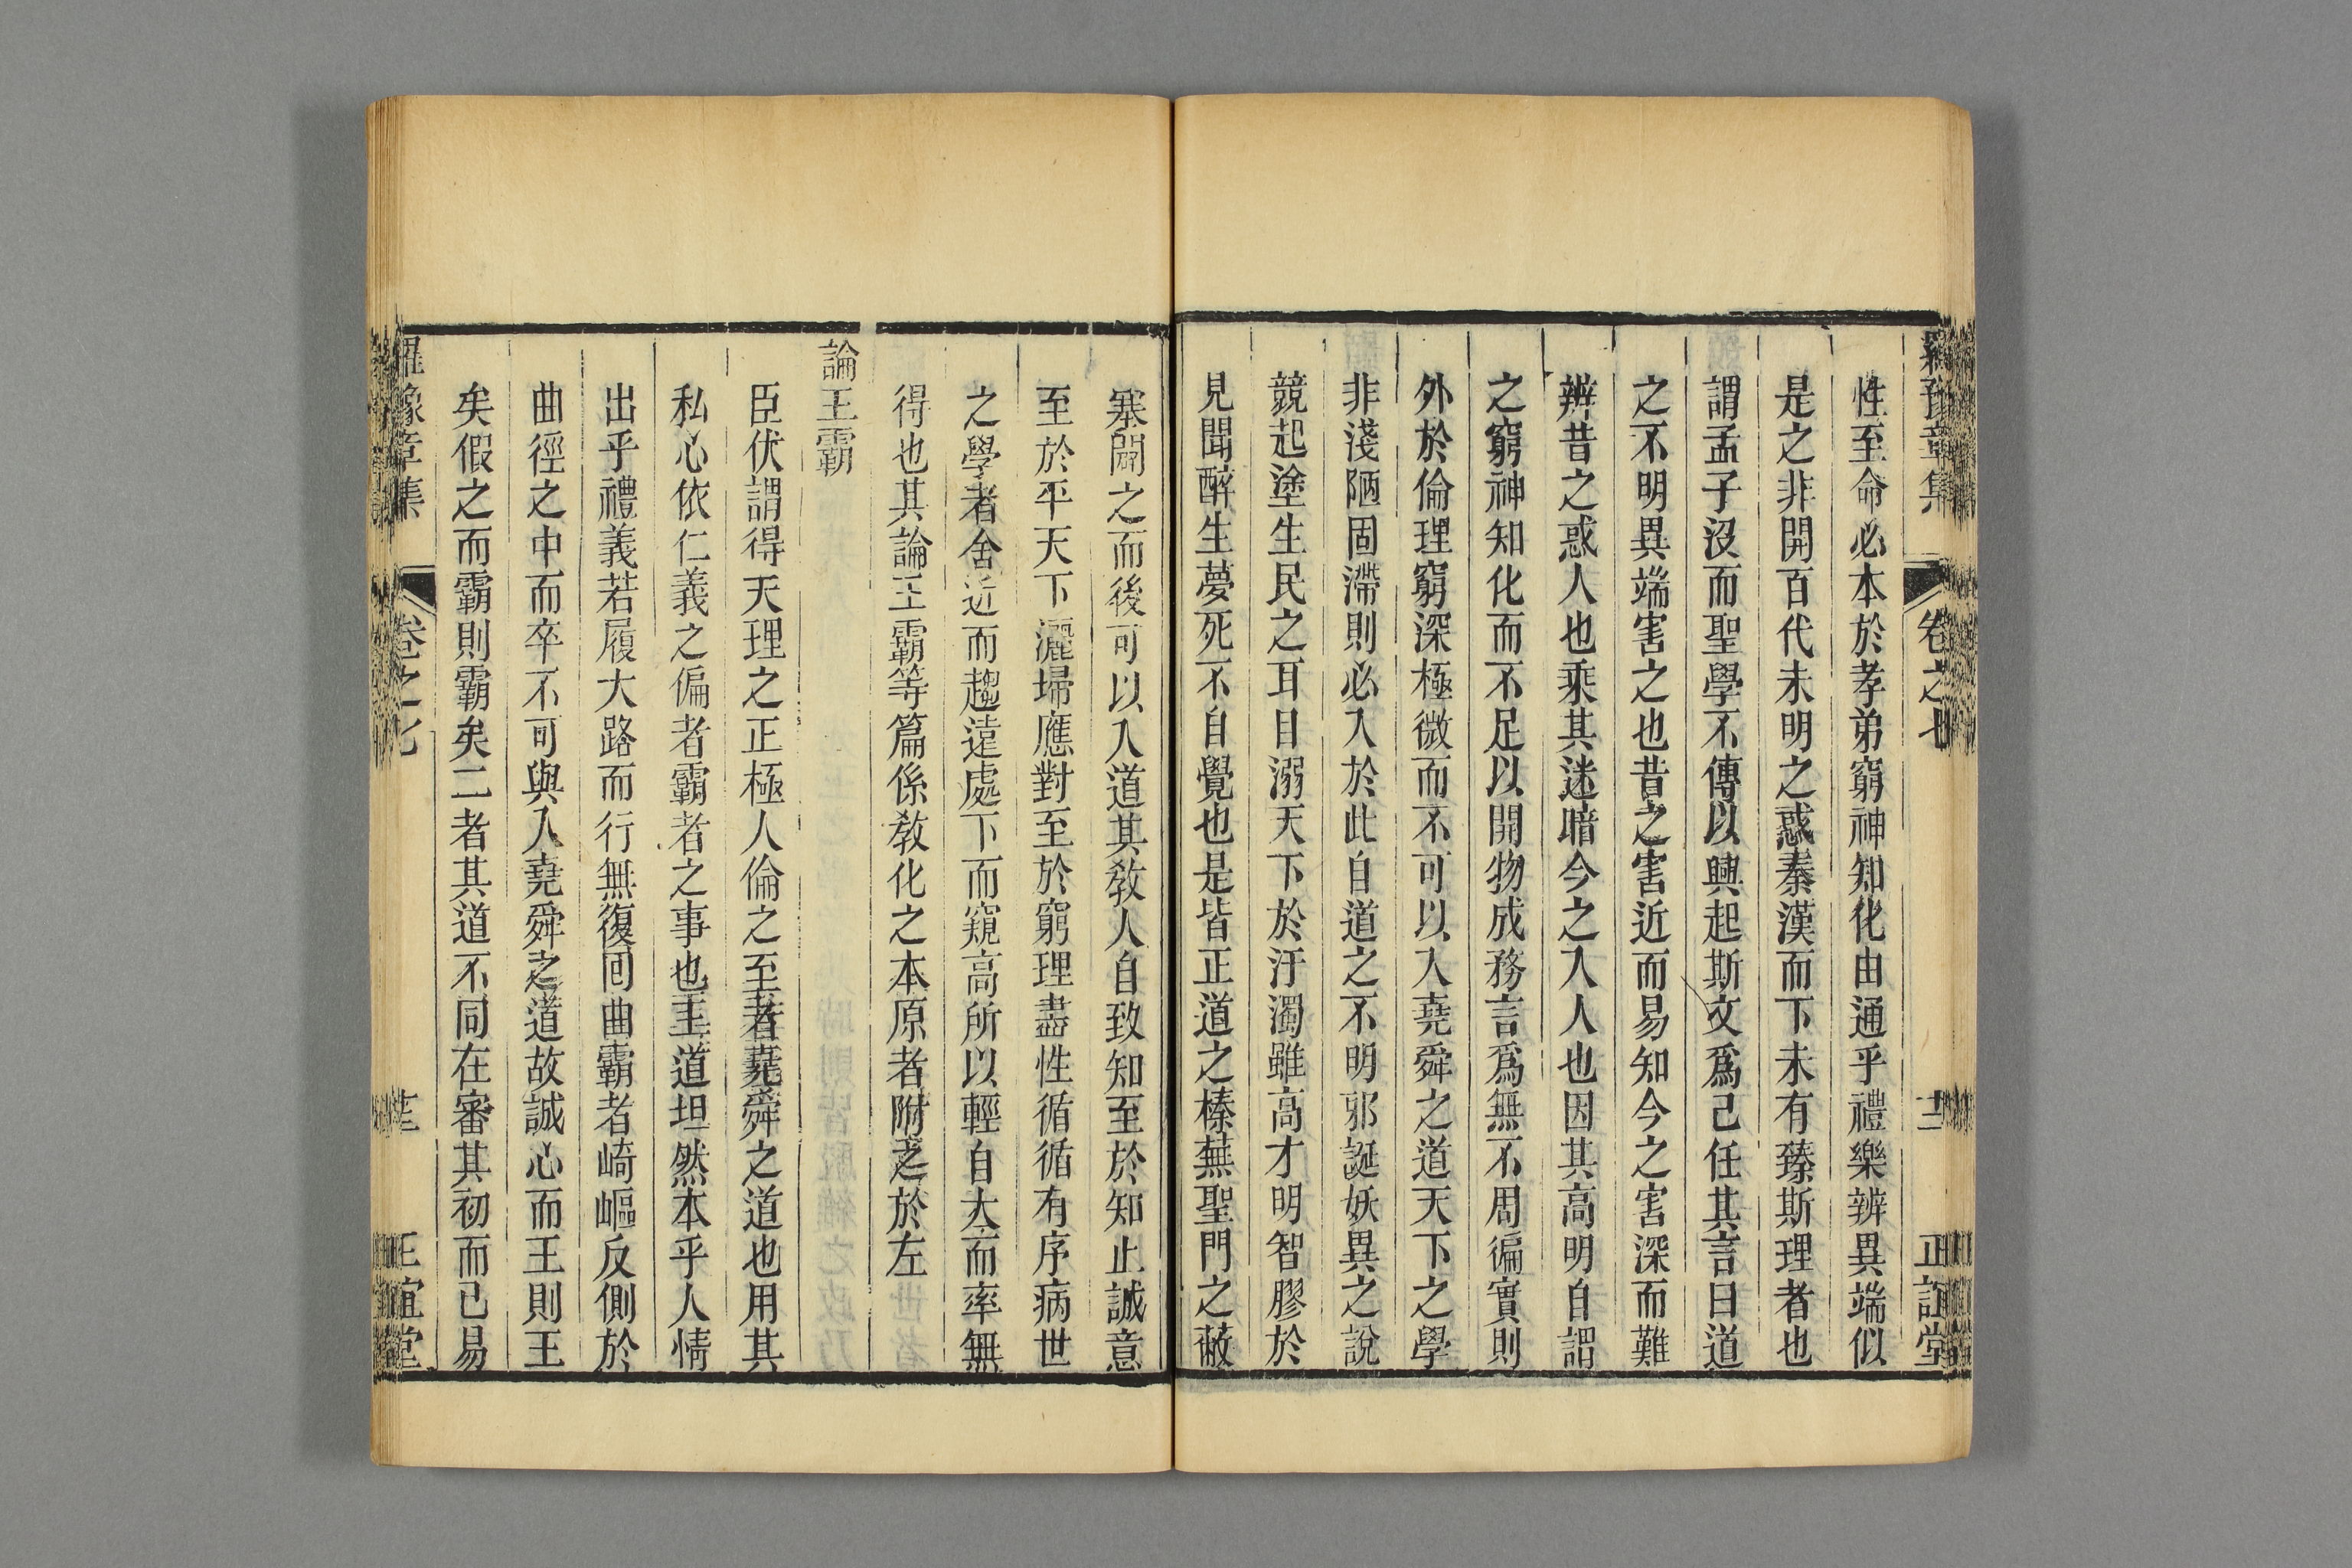 羅豫章集 卷之七 十二 正誼堂
性至命必本於孝弟窮神知化由通乎禮樂辨異端似
是之非開百代未明之惑秦漢而下未有臻斯理者也
謂孟子沒而聖學不傳以興起斯文爲己任其言曰道
之不明異端害之也昔之害近而易知今之害深而難
辨昔之惑人也乘其迷暗今之入人也因其高明自謂
之窮神知化而不足以開物成務言爲無不周徧實則
外於倫理窮深極微而不可以入堯舜之道天下之學
非淺陋固滯則必入於此自道之不明邪誕妖異之說
競起塗生民之耳目溺天下於汙濁雖高才明智膠於
見聞醉生夢死不自覺也是皆正道之榛蕪聖門之蔽
塞闢之而後可以入道其敎人自致知至於知止誠意
至於平天下灑埽應對至於窮理盡性循循有序病世
之學者舍近而趨遠處下而窺高所以輕自大而率無
得也其論王霸等篇係敎化之本原者附之於左
論王霸
臣伏謂得天理之正極人倫之至者堯舜之道也用其
私心依仁義之偏者霸者之事也王道坦然本乎人情
出乎禮義若履大路而行無復回曲霸者崎嶇反側於
曲徑之中而卒不可與入堯舜之道故誠心而王則王
矣假之而霸則霸矣二者其道不同在審其初而已易
羅豫章集 卷之七 正誼堂